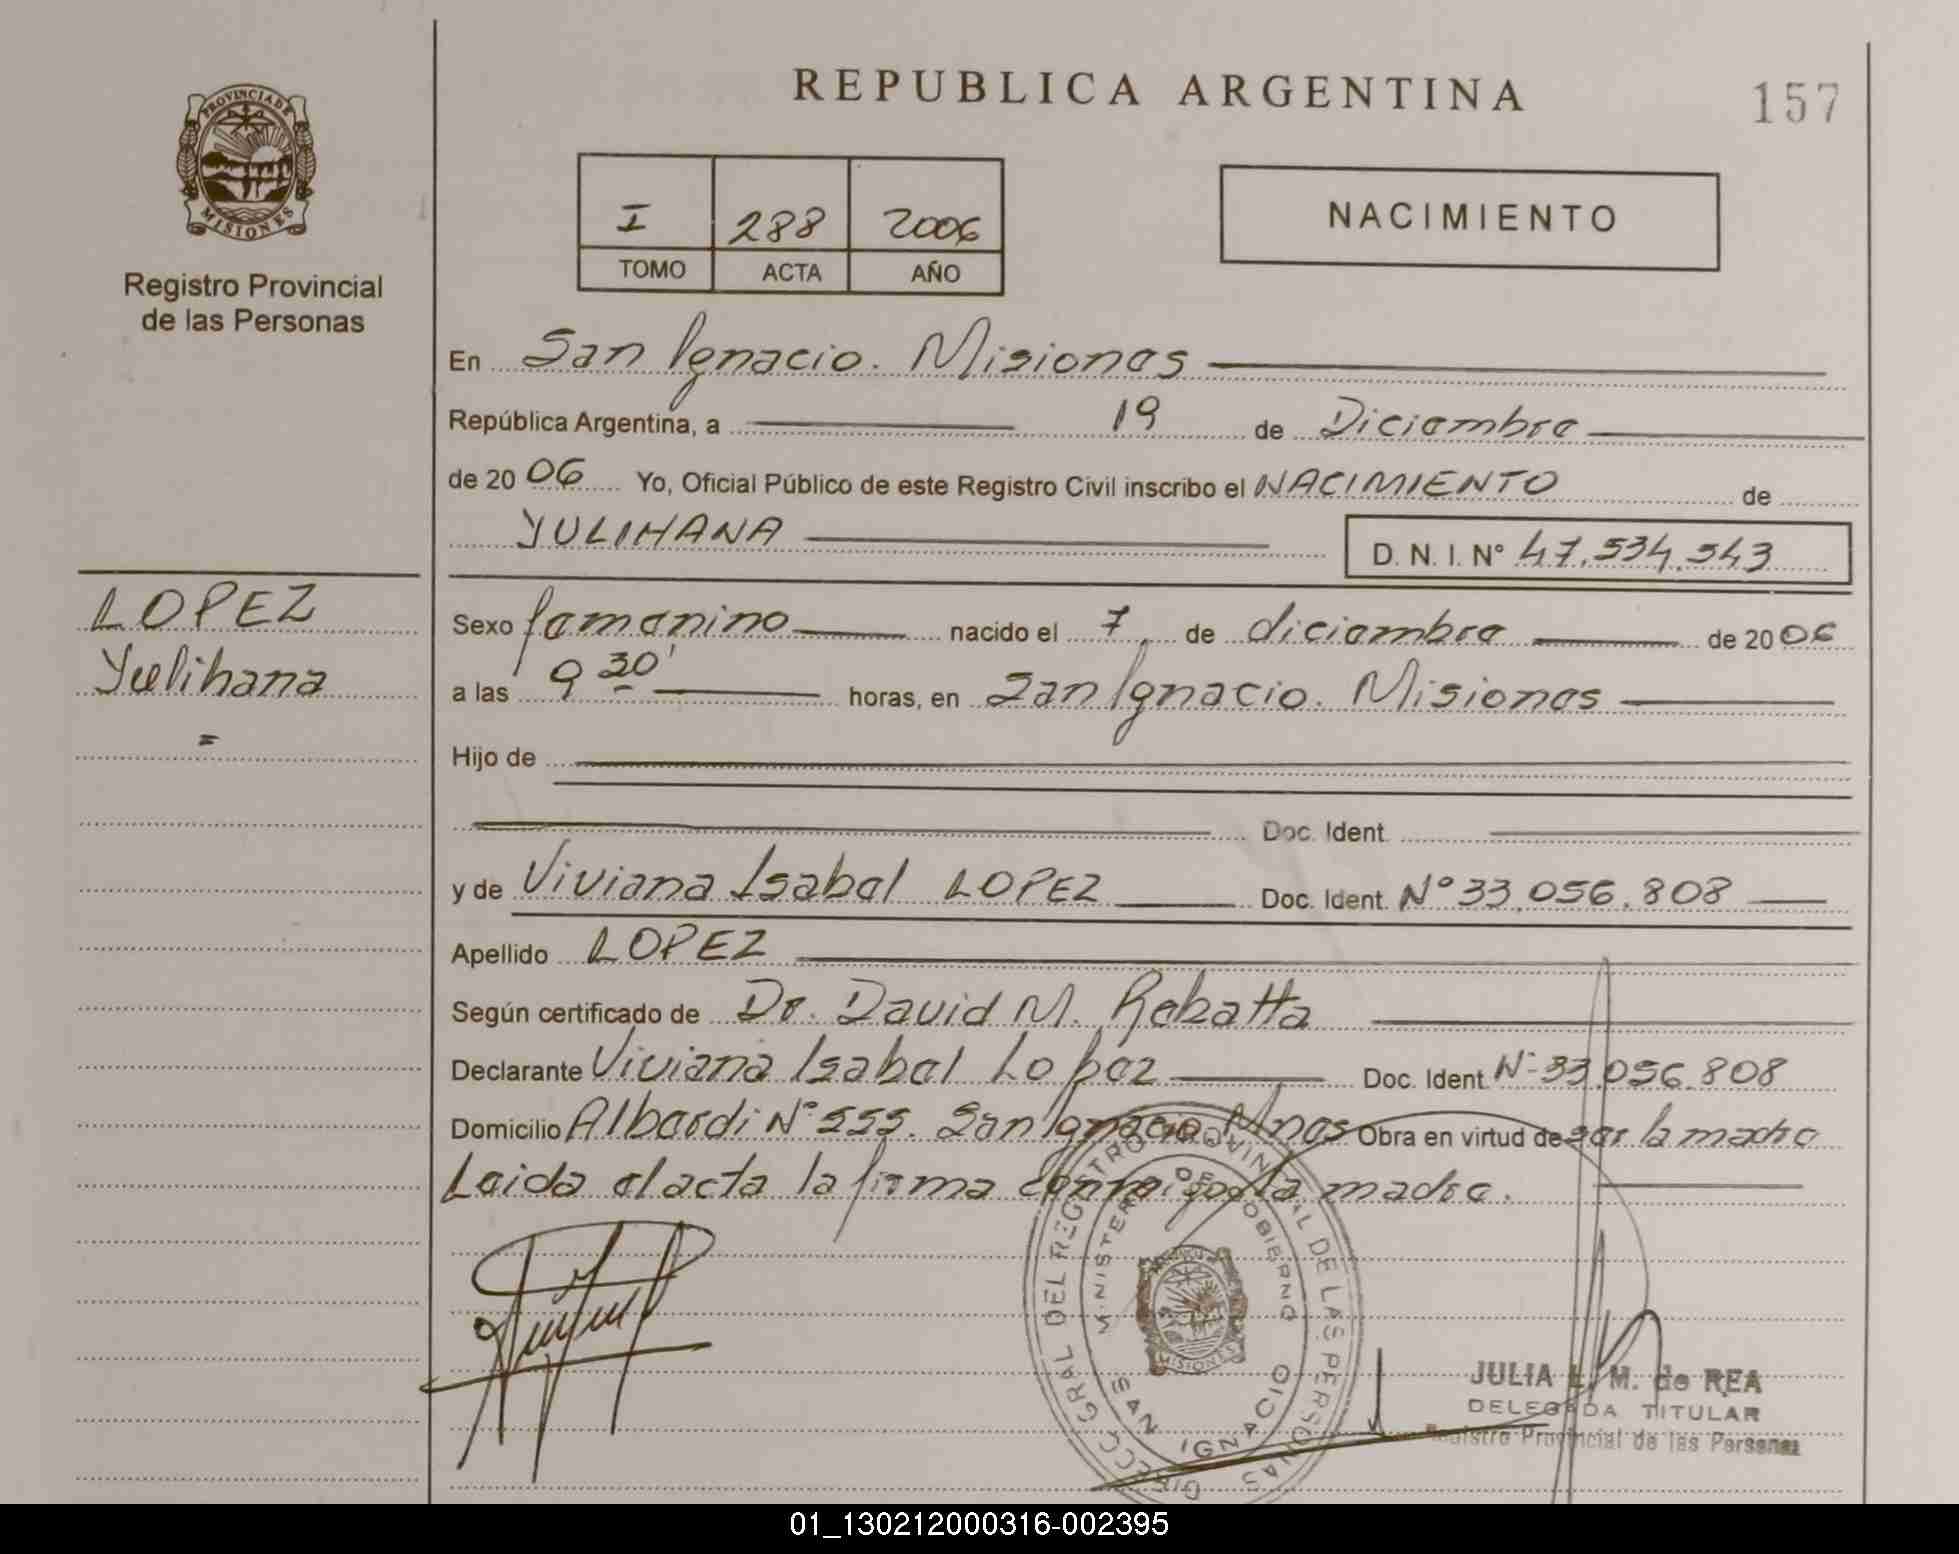 REPUBLICA ARGENTINA
157
PROVINCIA DE
MISIONES
Registro Provincial
de las Personas
I 288 2006
TOMO ACTA AÑO
NACIMIENTO
En San Ignacio. Misiones
República Argentina, a 19 de Diciembre
de 2006 Yo, Oficial Público de este Registro Civil inscribo el NACIMIENTO de
YULIHANA D. N. I. N° 47.534.543
LOPEZ
Yulihana
=
Sexo femenino nacido el 7 de diciembre de 2006
a las 9 30' horas, en San Ignacio. Misiones
Hijo de
Doc. Ident.
y de Viviana Isabel LOPEZ Doc. Ident. N° 33.056.808
Apellido LOPEZ
Según certificado de Dr. David M. Rebatta
Declarante Viviana Isabel Lopez Doc. Ident. N° 33.056.808
Domicilio Alberdi N° 555. San Ignacio Mnes Obra en virtud de ser la madre
Leida el acta la firma conmigo la madre.
DIRECC GRAL DEL REGISTRO PROVINCIAL DE LAS PERSONAS
MINISTERIO DE GOBIERNO
MISIONES
SAN IGNACIO
JULIA L. M. de REA
DELEGADA TITULAR
Registro Provincial de las Personas
01_130212000316-002395